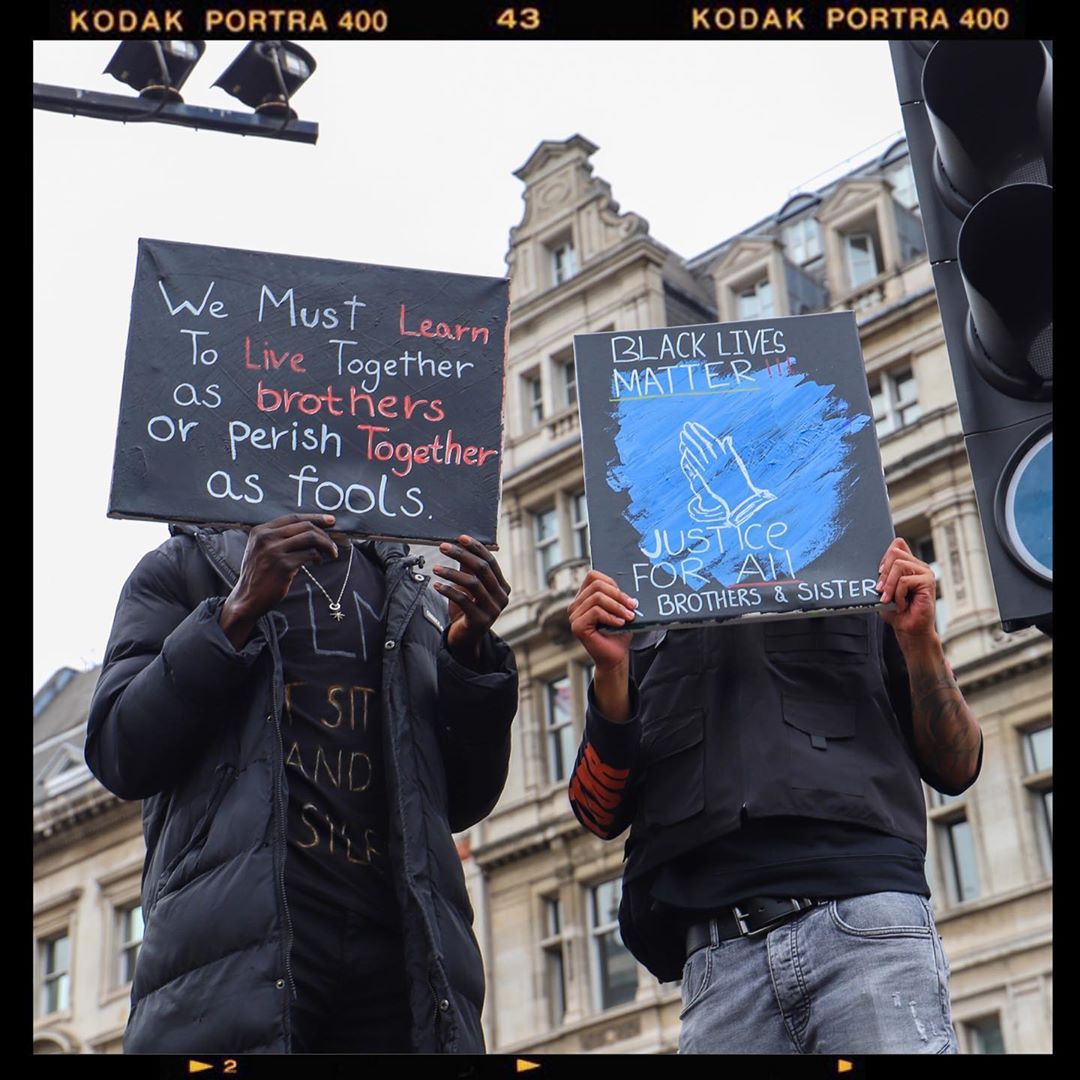 KODAK PORTRA 400 43 KODAK PORTRA 400
We Must Learn
To Live Together
as brothers
or perish Together
as fools.
BLACK LIVES
MATTER !!!
JUSTICE
FOR All
BROTHERS & SISTER
BLM
SIT
AND
2